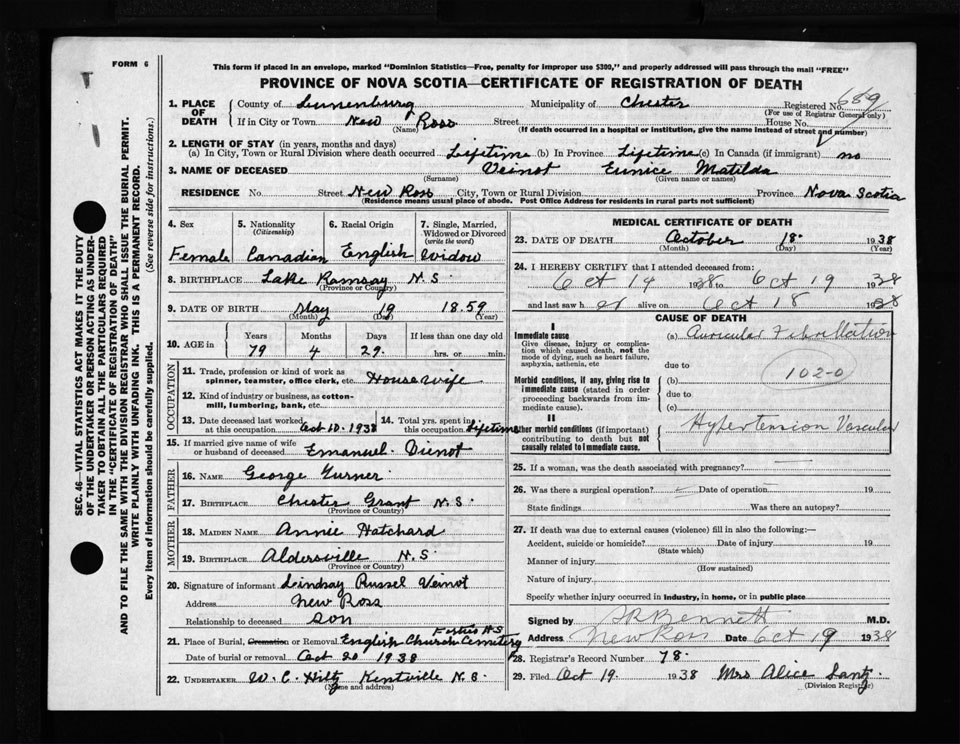 FORM 6
This form if placed in an envelope, marked "Dominion Statistics—Free, penalty for improper use $300," and properly addressed will pass through the mail "FREE"
PROVINCE OF NOVA SCOTIA—CERTIFICATE OF REGISTRATION OF DEATH
689
1. PLACE OF DEATH
County of Lunenburg Municipality of Chester Registered No.
(For use of Registrar General only)
If in City or Town New Ross Street House No.
(Name) (If death occurred in a hospital or institution, give the name instead of street and number)
2. LENGTH OF STAY (in years, months and days)
(a) In City, Town or Rural Division where death occurred Lifetime (b) In Province Lifetime (c) In Canada (if immigrant) no
3. NAME OF DECEASED Veinot Eunice Matilda
(Surname) (Given name or names)
RESIDENCE No. Street New Ross City, Town or Rural Division Province Nova Scotia
(Residence means usual place of abode. Post Office Address for residents in rural parts not sufficient)
4. Sex
Female
5. Nationality
(Citizenship)
Canadian
6. Racial Origin
English
7. Single, Married, Widowed or Divorced
(write the word)
Widow
8. BIRTHPLACE Lake Ramsay N.S.
(Province or Country)
9. DATE OF BIRTH May 19 1859
(Month) (Day) (Year)
10. AGE in Years Months Days If less than one day old
79 4 29. hrs. or min.
OCCUPATION
11. Trade, profession or kind of work as
spinner, teamster, office clerk, etc. Housewife
12. Kind of industry or business, as cotton-
mill, lumbering, bank, etc.
13. Date deceased last worked
at this occupation Oct 10. 1938
14. Total yrs. spent in
this occupation lifetime
15. If married give name of wife
or husband of deceased Emanuel Vienot
FATHER
16. NAME George Turner
17. BIRTHPLACE Chester Grant N.S.
(Province or Country)
MOTHER
18. MAIDEN NAME Annie Hatchard
19. BIRTHPLACE Aldersville N.S
(Province or Country)
20. Signature of informant Lindsay Russel Veinot
Address New Ross
Relationship to deceased Son
21. Place of Burial, Cremation or Removal English Church Cemetery
Forties N.S
Date of burial or removal Oct 20 1938
22. UNDERTAKER W. C. Hiltz Kentville N.S.
(Name and address)
MEDICAL CERTIFICATE OF DEATH
23. DATE OF DEATH October 18. 1938
(Month) (Day) (Year)
24. I HEREBY CERTIFY that I attended deceased from:
Oct 14 1938 to Oct 19 1938
and last saw her alive on Oct 18 1938
CAUSE OF DEATH
I
Immediate cause
Give disease, injury or complica-
tion which caused death, not the
mode of dying, such as heart failure,
asphyxia, asthenia, etc
(a) Auricular Fibrillation
due to
Morbid conditions, if any, giving rise to
immediate cause (stated in order
proceeding backwards from im-
mediate cause).
(b)
102-0
due to
(c)
II
Other morbid conditions (if important)
contributing to death but not
causally related to immediate cause.
Hypertension Vascular
25. If a woman, was the death associated with pregnancy?
26. Was there a surgical operation? Date of operation 19
State findings Was there an autopsy?
27. If death was due to external causes (violence) fill in also the following:—
Accident, suicide or homicide? Date of injury 19
(State which)
Manner of injury
(How sustained)
Nature of injury
Specify whether injury occurred in industry, in home, or in public place
Signed by SR Bennett M.D.
Address New Ross Date Oct 19 1938
28. Registrar's Record Number 78.
29. Filed Oct 19. 1938 Mrs Alice Lantz
(Division Registrar)
SEC. 46—VITAL STATISTICS ACT MAKES IT THE DUTY
OF THE UNDERTAKER OR PERSON ACTING AS UNDER-
TAKER TO OBTAIN ALL THE PARTICULARS REQUIRED
IN THE "CERTIFICATE OF REGISTRATION OF DEATH"
AND TO FILE THE SAME WITH THE DIVISION REGISTRAR WHO SHALL ISSUE THE BURIAL PERMIT.
WRITE PLAINLY WITH UNFADING INK. THIS IS A PERMANENT RECORD.
Every item of information should be carefully supplied. (See reverse side for instructions.)